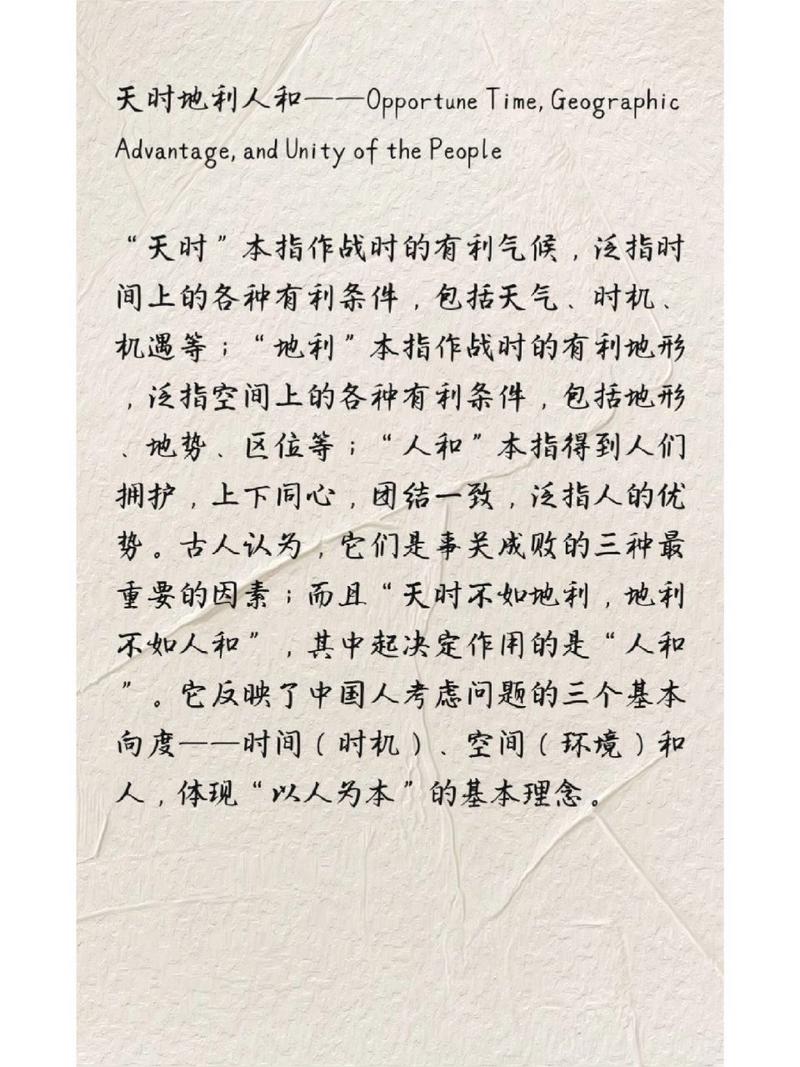 天时地利人和——Opportune Time, Geographic
Advantage, and Unity of the People
“天时”本指作战时的有利气候，泛指时
间上的各种有利条件，包括天气、时机、
机遇等；“地利”本指作战时的有利地形
，泛指空间上的各种有利条件，包括地形
、地势、区位等；“人和”本指得到人们
拥护，上下同心，团结一致，泛指人的优
势。古人认为，它们是事关成败的三种最
重要的因素；而且“天时不如地利，地利
不如人和”，其中起决定作用的是“人和
”。它反映了中国人考虑问题的三个基本
向度——时间（时机）、空间（环境）和
人，体现“以人为本”的基本理念。